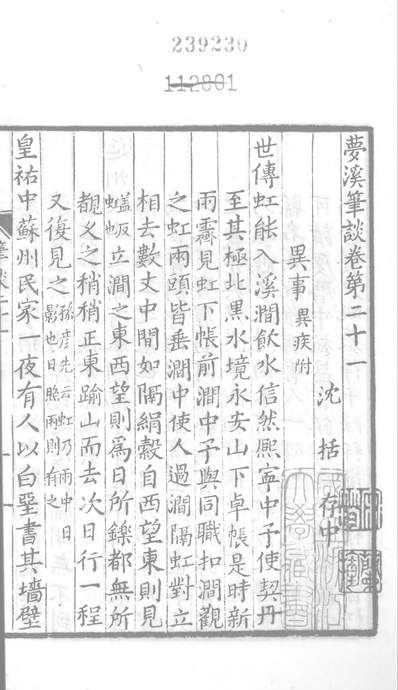 239230
112801
夢溪筆談卷第二十一
沈括存中
異事 異疾附
世傳虹能入溪澗飲水信然熈寧中予使契丹
至其極北黑水境永安山下卓帳是時新
雨霽見虹下帳前澗中予與同職扣澗觀
之虹兩頭皆垂澗中使人過澗隔虹對立
相去數丈中間如隔綃縠自西望東則見
蓋夕虹也 立澗之東西望則爲日所鑠都無所
覩乆之稍稍正東踰山而去次日行一程
又復見之 孫彦先云虹乃雨中日影也日照雨則有之
皇祐中蘇州民家一夜有人以白堊書其墻壁